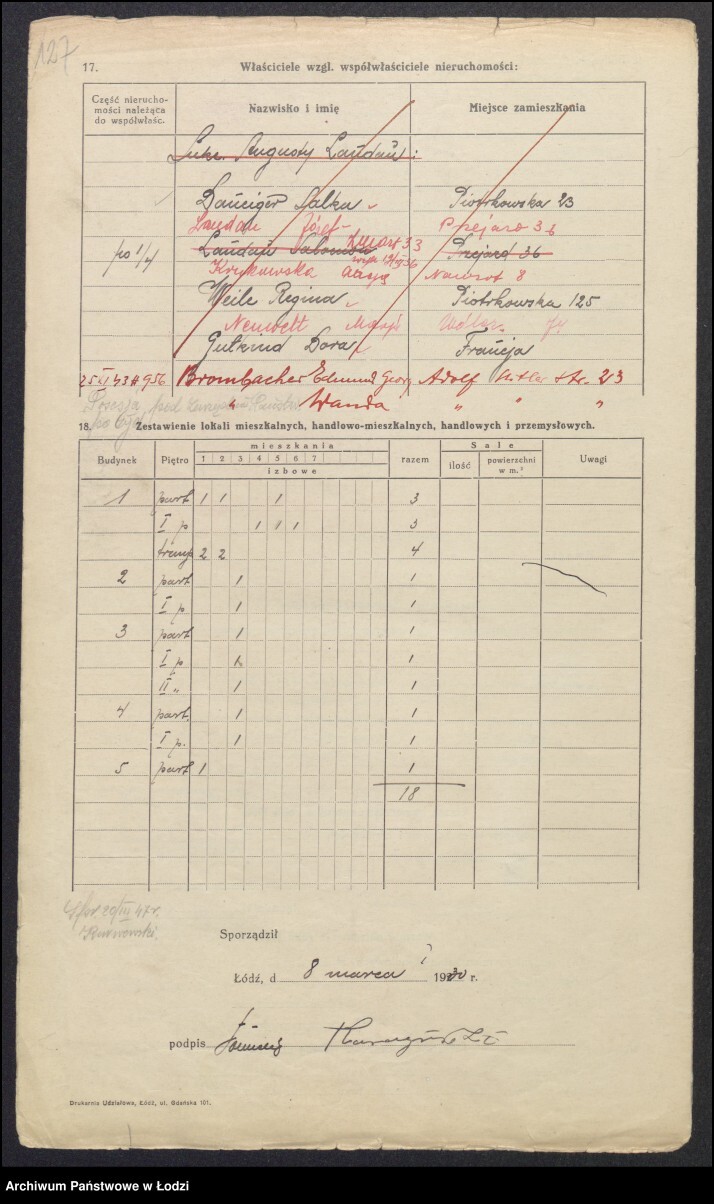 127
17. Właściciele wzgl. współwłaściciele nieruchomości:
Część nierucho-
mości należąca
do współwłaśc.
Nazwisko i imię
Miejsce zamieszkania
Sukc. Augusty Landau:
Danciger Salka Piotrkowska 23
Landau Józef Przejazd 36
po 1/4 Landau Salomon Przejazd 36
Krykowska Nawrot 8
Weile Regina Piotrkowska 125
Neuwelt
Gutkind Dora Francja
25 XI 43 # 956 Brombacher Edmund Georg Adolf Hitler Str. 213
" Wanda " " "
Posesja pod
18. Zestawienie lokali mieszkalnych, handlowo-mieszkalnych, handlowych i przemysłowych.
Budynek Piętro mieszkania razem Sale Uwagi
1 2 3 4 5 6 7 ilość powierzchni w m.²
izbowe
1 part 1 1 1 3
I p 1 1 1 3
2 2 4
2 part 1 1
I p 1 1
3 part 1 1
I p 1 1
II " 1 1
4 part. 1 1
I p. 1 1
5 part 1 1
18
Sporządził
Łódź, d 8 marca 1930 r.
podpis
Drukarnia Udziałowa, Łódź, ul. Gdańska 101.
Archiwum Państwowe w Łodzi